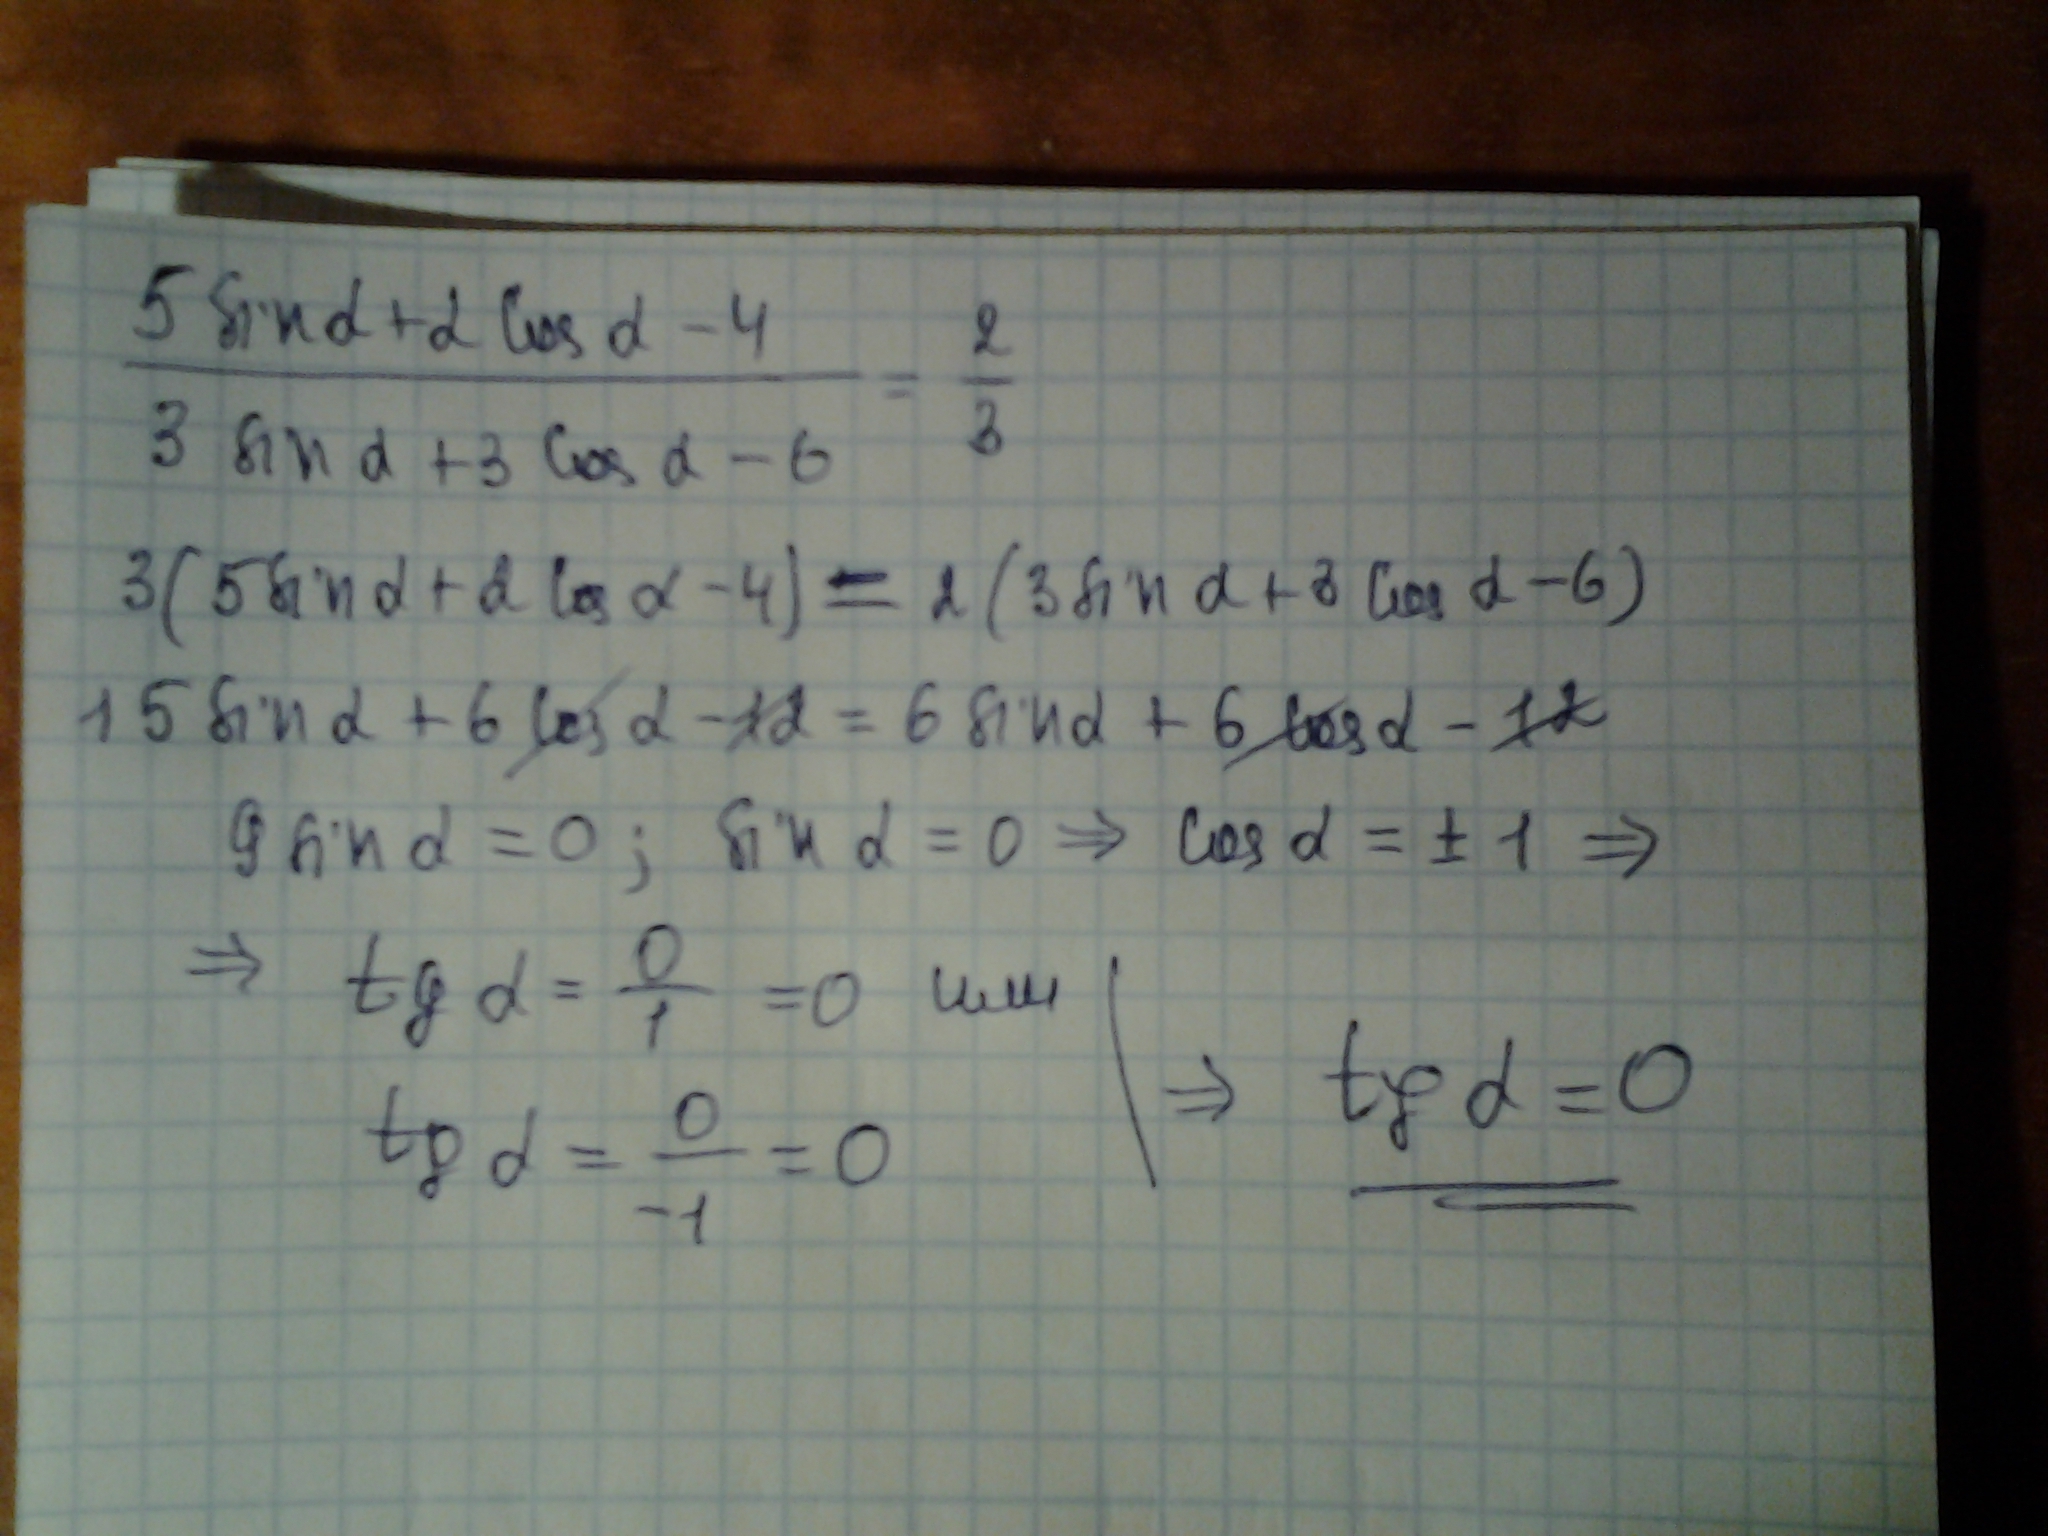 (5 sin α + 2 cos α − 4) / (3 sin α + 3 cos α − 6) = 2/3
3(5 sin α + 2 cos α − 4) = 2(3 sin α + 3 cos α − 6)
15 sin α + 6 cos α − 12 = 6 sin α + 6 cos α − 12
9 sin α = 0; sin α = 0 ⇒ cos α = ± 1 ⇒
⇒ tg α = 0/1 = 0 или
tg α = 0/−1 = 0
⇒ tg α = 0